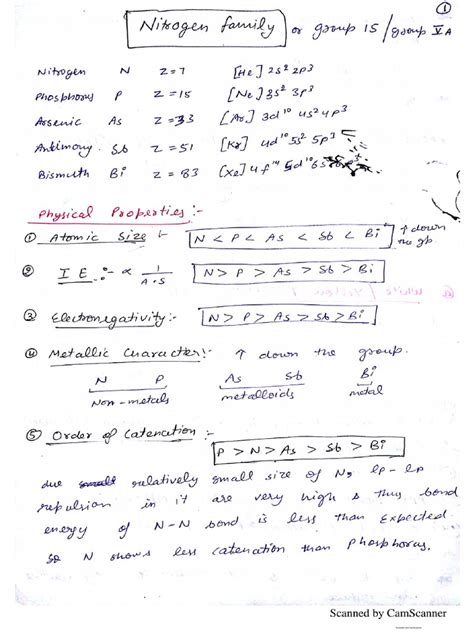 ①
Nitrogen family or group 15 / group V A
Nitrogen N Z=7 [He] 2s² 2p³
Phosphorus P Z=15 [Ne] 3s² 3p³
Arsenic As Z=33 [Ar] 3d¹⁰ 4s² 4p³
Antimony Sb Z=51 [Kr] 4d¹⁰ 5s² 5p³
Bismuth Bi Z=83 [Xe] 4f¹⁴ 5d¹⁰ 6s² 6p³
Physical Properties :-
① Atomic Size :- N < P < As < Sb < Bi ↑ down the gp
② I E :- ∝ 1/A.S N > P > As > Sb > Bi
③ Electronegativity:- N > P > As > Sb > Bi
④ Metallic Character:- ↑ down the group.
N P As Sb Bi
Non-metals metalloids metal
⑤ Order of Catenation :-
P > N > As > Sb > Bi
due relatively small size of N, lp-lp
repulsion in it are very high & thus bond
energy of N-N bond is less than expected
so N shows less catenation than Phosphorus.
Scanned by CamScanner